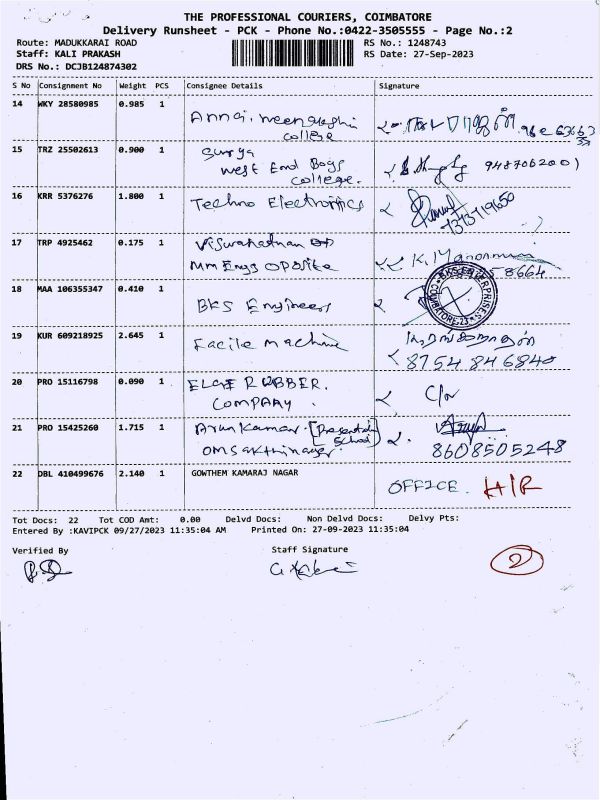 THE PROFESSIONAL COURIERS, COIMBATORE
Delivery Runsheet - PCK - Phone No.:0422-3505555 - Page No.:2
Route: MADUKKARAI ROAD RS No.: 1248743
Staff: KALI PRAKASH RS Date: 27-Sep-2023
DRS No.: DCJB124874302
S No Consignment No Weight PCS Consignee Details Signature
14 WKY 28580985 0.985 1
college
15 TRZ 25502613 0.900 1 Surya
West End Boys
college. 9487062001
16 KRR 5376276 1.800 1 Techno Electronics
17 TRP 4925462 0.175 1 Viswanathan OP
Mm Engg Opposite K. Manonmani
58664
18 MAA 106355347 0.410 1 BKS Engineers
BKS ENTERPRISES COIMBATORE-23
19 KUR 609218925 2.645 1 Facile machine
8754846840
20 PRO 15116798 0.090 1 ELGI RUBBER.
COMPANY. C/o
21 PRO 15425260 1.715 1 Arun Kumar. [Presentation School]
Omsakthinager. 8608505248
22 DBL 410499676 2.140 1 GOWTHEM KAMARAJ NAGAR
OFFICE. H/R
Tot Docs: 22 Tot COD Amt: 0.00 Delvd Docs: Non Delvd Docs: Delvy Pts:
Entered By :KAVIPCK 09/27/2023 11:35:04 AM Printed On: 27-09-2023 11:35:04
Verified By Staff Signature
2